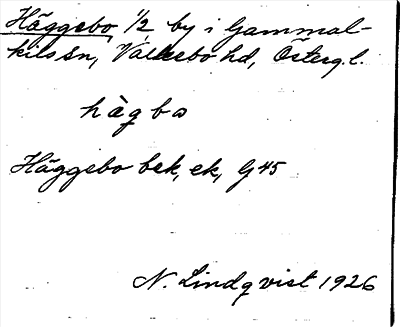 Häggebo, 1/2 by i Gammal-
kils sn, Valkebo hd, Österg.l.
hàgbo
Häggebo bek, ek, G45
N. Lindqvist 1926